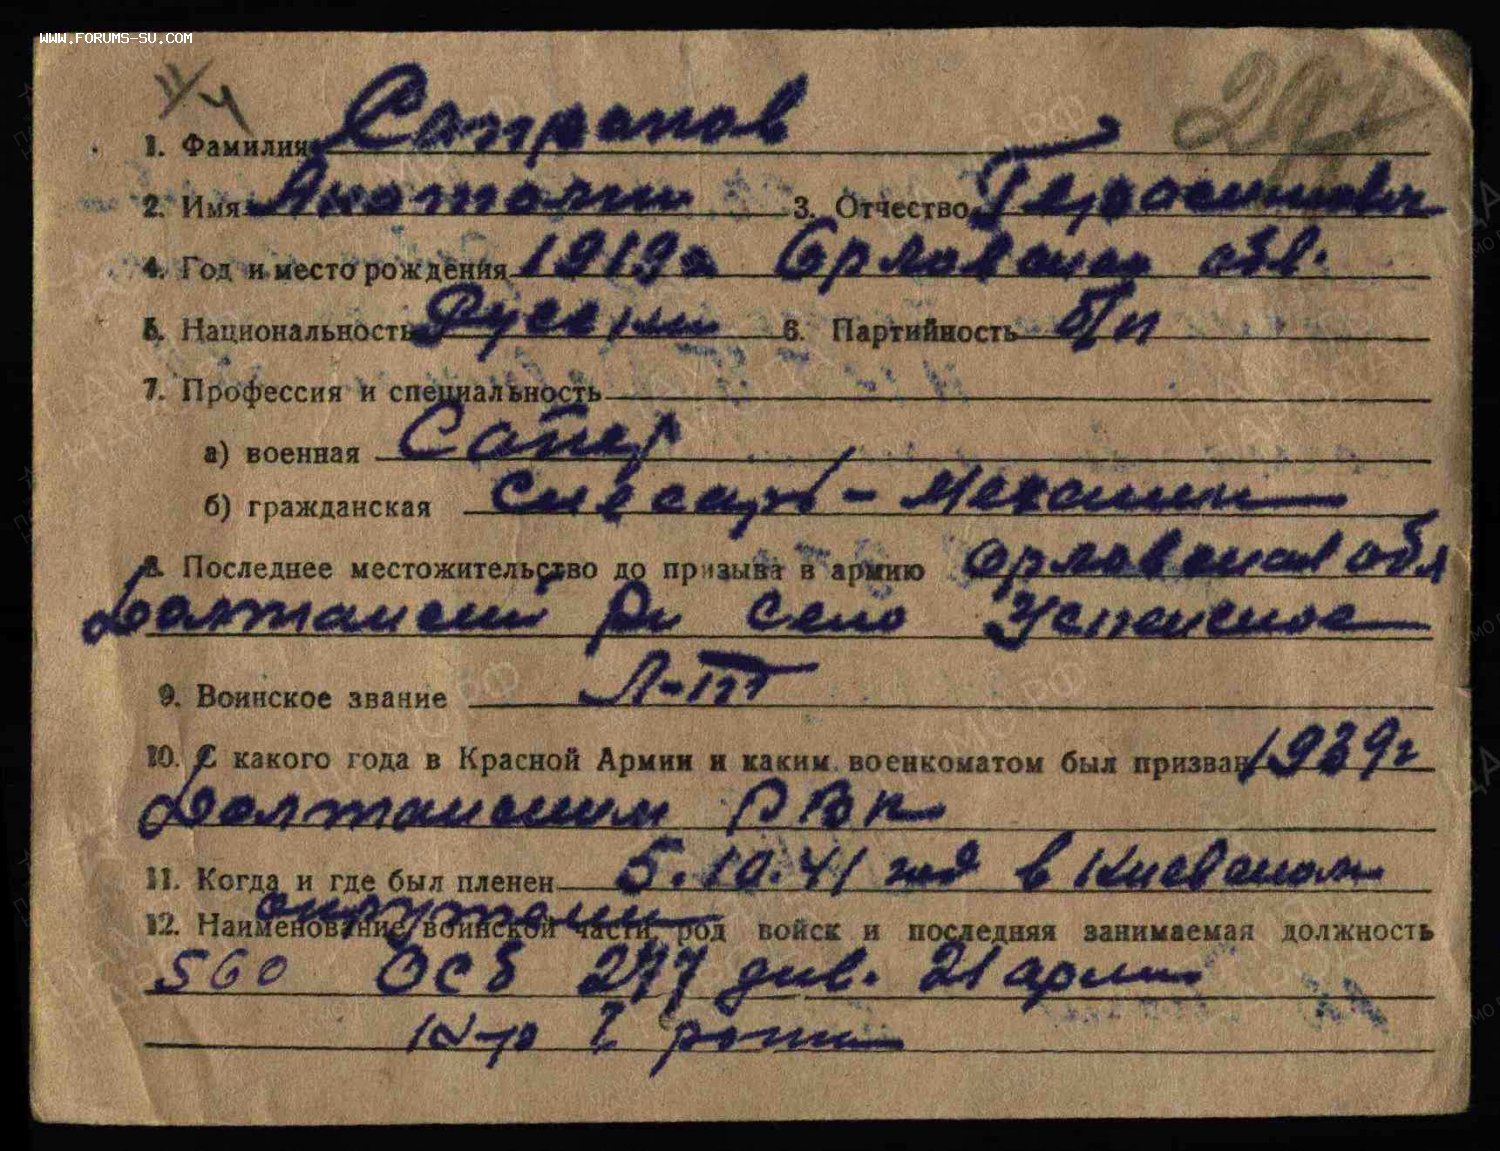 WWW.FORUMS-SU.COM
1. Фамилия Сапронов
2. Имя Анатолий 3. Отчество Герасимович
4. Год и место рождения 1919г Орловская обл.
5. Национальность Русский 6. Партийность б/п
7. Профессия и специальность
а) военная Сапер
б) гражданская слесарь-механик
8. Последнее местожительство до призыва в армию Орловская обл
Должанский село Успенское
9. Воинское звание Л-нт
10. С какого года в Красной Армии и каким военкоматом был призван 1939г
Должанским РВК
11. Когда и где был пленен 5.10.41 год в Киевском
окружении
12. Наименование воинской части, род войск и последняя занимаемая должность
560 ОСБ 277 див. 21 армии
к-р роты